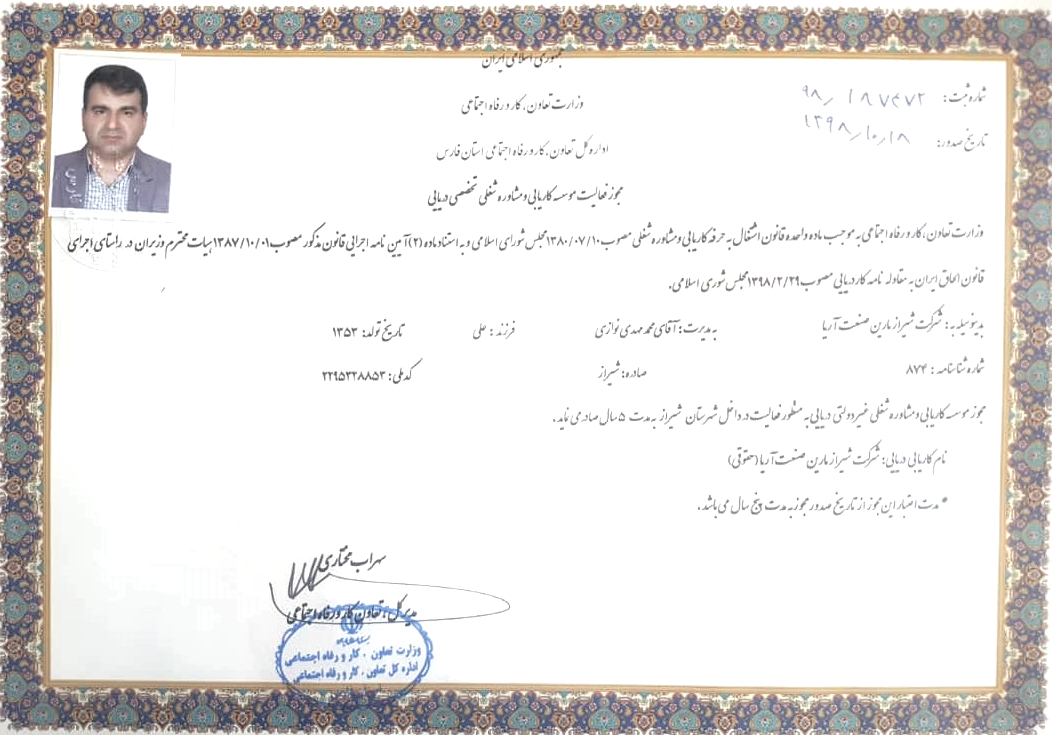 جمهوری اسلامی ایران
وزارت تعاون، کار و رفاه اجتماعی
شماره ثبت: ۹۸/۱۸۷۴۷۲
اداره کل تعاون، کار و رفاه اجتماعی استان فارس
تاریخ صدور: ۱۳۹۸/۱۰/۱۸
مجوز فعالیت موسسه کاریابی و مشاوره شغلی تخصصی دریایی
وزارت تعاون، کار و رفاه اجتماعی به موجب ماده واحده قانون اشتغال به حرفه کاریابی و مشاوره شغلی مصوب ۱۳۸۰/۰۷/۱۰ مجلس شورای اسلامی و به استناد ماده (۲) آیین نامه اجرایی قانون مذکور مصوب ۱۳۸۷/۱۰/۰۱ هیات محترم وزیران در راستای اجرای
قانون الحاق ایران به مقاوله نامه کار دریایی مصوب ۱۳۹۸/۲/۲۹ مجلس شوری اسلامی.
بدینوسیله به: شرکت شیراز مارین صنعت آریا به مدیریت: آقای محمد مهدی نوازی فرزند: علی تاریخ تولد: ۱۳۵۳
شماره شناسنامه: ۸۷۴ صادره: شیراز کد ملی: ۲۲۹۵۳۲۸۸۵۳
مجوز موسسه کاریابی و مشاوره شغلی غیردولتی دریایی به منظور فعالیت در داخل شهرستان شیراز به مدت ۵ سال صادر می نماید.
نام کاریابی دریایی: شرکت شیراز مارین صنعت آریا (حقوقی)
* مدت اعتبار این مجوز از تاریخ صدور مجوز به مدت پنج سال می باشد.
سهراب مختاری
مدیر کل تعاون کار و رفاه اجتماعی
وزارت تعاون، کار و رفاه اجتماعی
اداره کل تعاون، کار و رفاه اجتماعی